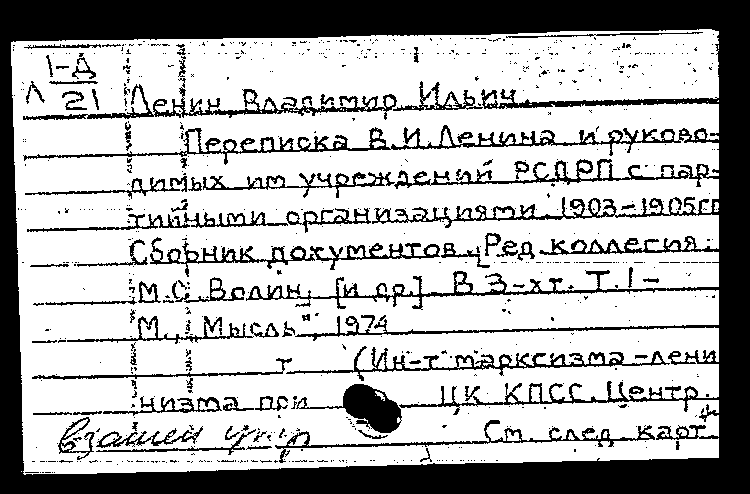 1-Д
Л 21
Ленин, Владимир Ильич.
Переписка В.И.Ленина и руково-
димых им учреждений РСДРП с пар-
тийными организациями. 1903-1905гг
Сборник документов. [Ред.коллегия:
М.С. Волин, [и др.]. В 3-х т. Т.1-
М., „Мысль", 1974
т (Ин-т марксизма-лени
низма при ЦК КПСС. Центр.
взамен См. след. карт.